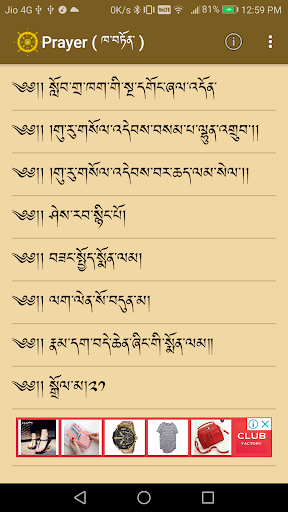 Jio 4G 0K/s 12:59 PM
Prayer ( ཁ་བཏོན་ )
༄༅།། སློབ་གྲྭ་ཁག་གི་སྔ་དགོང་ཞལ་འདོན་
༄༅།། །གུ་རུ་གསོལ་འདེབས་བསམ་པ་ལྷུན་འགྲུབ་།།
༄༅།། །གུ་རུ་གསོལ་འདེབས་བར་ཆད་ལམ་སེལ་།།
༄༅།། ཤེས་རབ་སྙིང་པོ།
༄༅།། བཟང་སྤྱོད་སྨོན་ལམ།
༄༅།། ལག་ལེན་སོ་བདུན་མ།
༄༅།། རྣམ་དག་བདེ་ཆེན་ཞིང་གི་སྨོན་ལམ།།
༄༅།། སྒྲོལ་མ།༢༡
CLUB
FACTORY